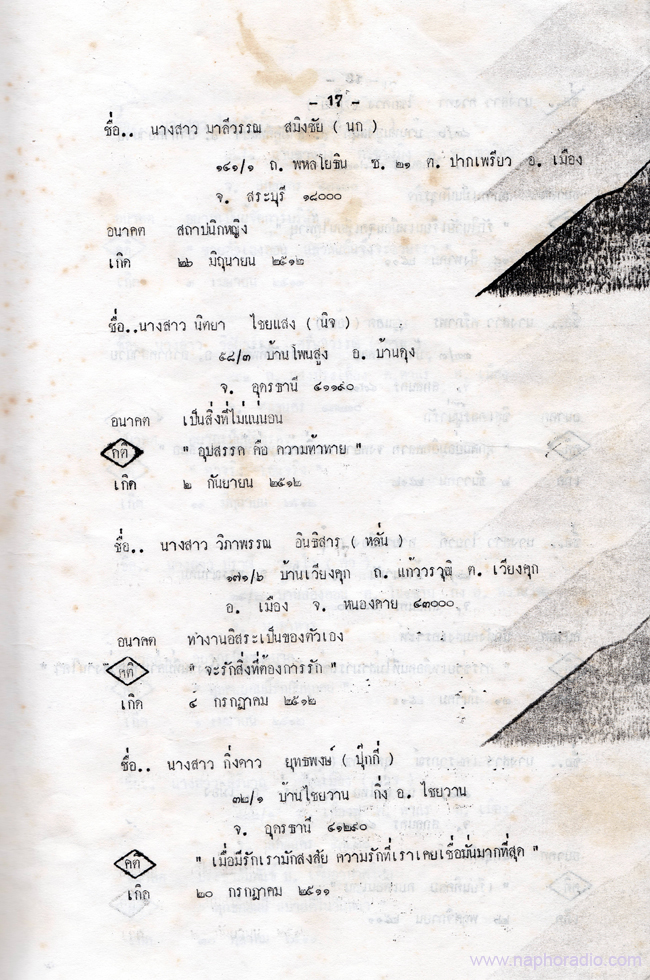 - 17 -
ชื่อ.. นางสาว มาลีวรรณ สมิงชัย ( นุก )
๑๔๑/๑ ถ. พหลโยธิน ซ. ๒๑ ต. ปากเพรียว อ. เมือง
จ. สระบุรี ๑๘๐๐๐
อนาคต สถาปนิกหญิง
เกิด ๒๖ มิถุนายน ๒๕๑๒
ชื่อ..นางสาว นิตยา ไชยแสง ( นิจ )
๕๘/๓ บ้านโพนสูง อ. บ้านดุง
จ. อุดรธานี ๔๑๑๙๐
อนาคต เป็นสิ่งที่ไม่แน่นอน
คติ " อุปสรรค คือ ความท้าทาย "
เกิด ๒ กันยายน ๒๕๑๒
ชื่อ.. นางสาว วิภาพรรณ อินธิสาร ( หลั่น )
๑๗๑/๖ บ้านเวียงคุก ถ. แก้ววรวุฒิ ต. เวียงคุก
อ. เมือง จ. หนองคาย ๔๓๐๐๐
อนาคต ทำงานอิสระเป็นของตัวเอง
คติ " จะรักสิ่งที่ต้องการรัก "
เกิด ๔ กรกฎาคม ๒๕๑๒
ชื่อ.. นางสาว กิ่งดาว ยุทธพงษ์ ( ปุ๊กกี่ )
๓๒/๑ บ้านไชยวาน กิ่ง อ. ไชยวาน
จ. อุดรธานี ๔๑๒๙๐
คติ " เมื่อมีรักเรามักสงสัย ความรักที่เราเคยเชื่อมั่นมากที่สุด "
เกิด ๒๐ กรกฎาคม ๒๕๑๑
www.naphoradio.com